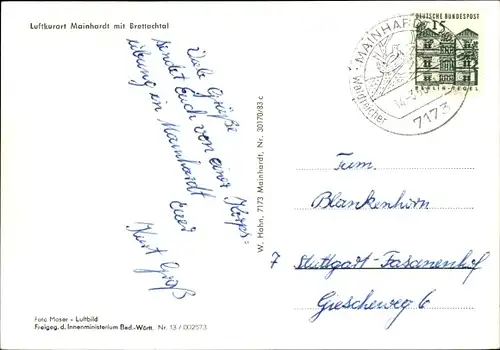 Luftkurort Mainhardt mit Brettachtal
Viele Grüße
sendet Euch von einer Korps=
übung in Mainhardt
Euer
Kurt Groß
W. Hahn, 7173 Mainhardt, Nr. 30170/83 c
DEUTSCHE BUNDESPOST
15
BERLIN-TEGEL
MAINHARDT
7173
Fam.
Blankenhorn
7 Stuttgart-Fasanenhof
Grescheweg 6
Foto Moser - Luftbild
Freigeg. d. Innenministerium Bad.-Württ. Nr. 13 / 002573